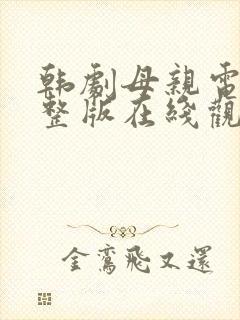 韩劇母親電
整版在綫觀
金鸞飛又還